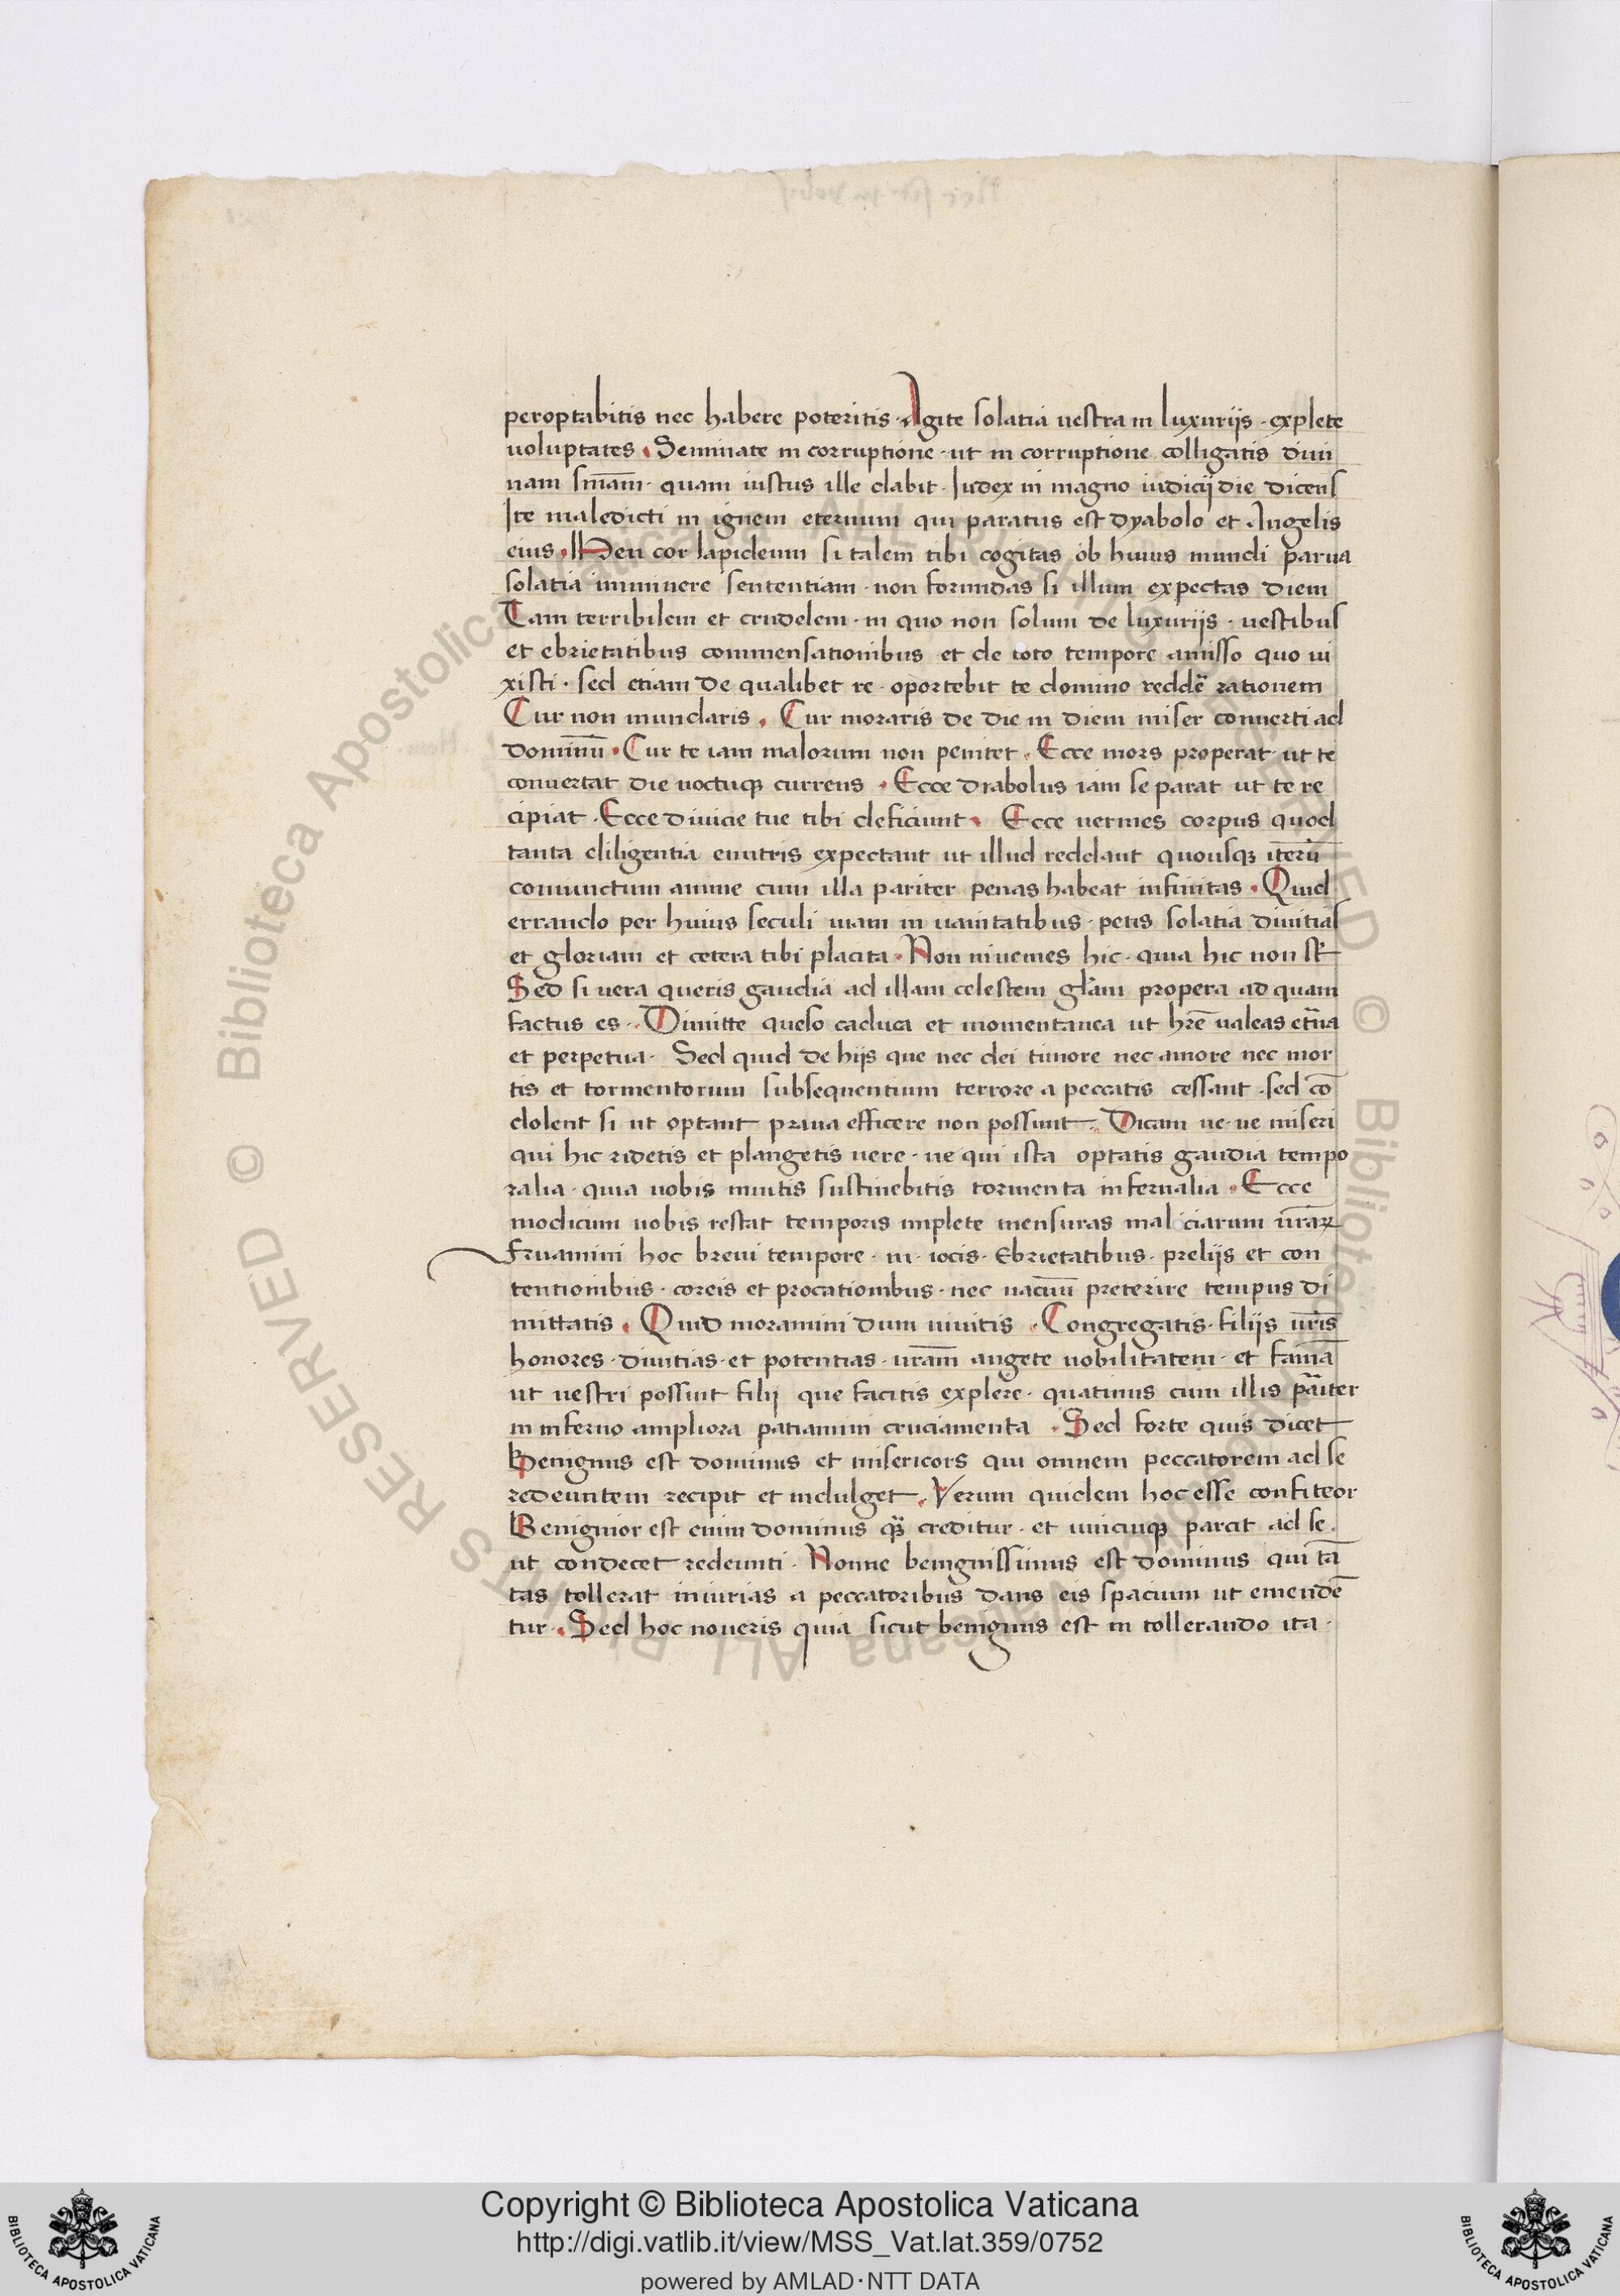 peroptabitis nec habere poteritis · Agite solatia uestra in luxurijs · explete
uoluptates · Seminate in corruptione · ut in corruptione colligatis diui
nam sm̄am · quam iustus ille dabit · Iudex in magno iudicij die dicens
Ite maledicti in ignem eternum qui paratus est dyabolo et Angelis
eius · Heu cor lapideum si talem tibi cogitas ob huius mundi parua
solatia imminere sententiam · non formidas si illum expectas diem
Tam terribilem et crudelem · in quo non solum de luxurijs · uestibus
et ebrietatibus commensationibus et de toto tempore amisso quo ui
xisti · sed etiam de qualibet re · oportebit te domino reddē rationem
Cur non mundaris · Cur moraris de die in diem miser conuerti ad
dominū · Cur te iam malorum non penitet · Ecce mors properat ut te
conuertat die noctuqꝫ currens · Ecce diabolus iam se parat ut te re
cipiat · Ecce diuicie tue tibi deficiunt · Ecce uermes corpus quod
tanta diligentia enutris expectant ut illud reddant quousqꝫ iterū
coniunctum anime cum illa pariter penas habeat infinitas · Quid
errando per huius seculi uiam in uanitatibus · petis solatia diuitias
et gloriam et cetera tibi placita · Non inuenies hic · quia hic non st̄
Sed si uera queris gaudia ad illam celestem glām propera ad quam
factus es · Dimitte queso caduca et momentanea ut hrē ualeas et̄na
et perpetua · Sed quid de hijs que nec dei timore nec amore nec mor
tis et tormentorum subsequentium terrore a peccatis cessant · sed cō
dolent si ut optant praua efficere non possunt · Dicam ue · ue miseri
qui hic ridetis et plangetis uere · ue qui ista optatis gaudia tempo
ralia · quia uobis inuitis sustinebitis tormenta infernalia · Ecce
modicum uobis restat temporis implete mensuras maliciarum ur̄aꝝ
fruamini hoc breui tempore · in · iocis · Ebrietatibus · prelijs et con
tentionibus · coreis et procationibus · nec uacuū preterire tempus di
mittatis · Quid moramini dum uiuitis · Congregatis · filijs ur̄is
honores · diuitias · et potentias · ur̄am augete nobilitatem · et famā
ut uestri possint filij que facitis explere · quatinus cum illis pāiter
in inferno ampliora patiamini cruciamenta · Sed forte quis dicet
Benignus est dominus et misericors qui omnem peccatorem ad se
redeuntem recipit et indulget · Verum quidem hoc esse confiteor
Benignior est enim dominus qꝫ̄ creditur · et unicuiqꝫ parcit ad se ·
ut condecet redeunti · Nonne benignissimus est dominus qui tā
tas tollerat iniurias a peccatoribus dans eis spacium ut emendē
tur · Sed hoc noueris quia sicut benignus est in tollerando ita ·
Copyright © Biblioteca Apostolica Vaticana
http://digi.vatlib.it/view/MSS_Vat.lat.359/0752
powered by AMLAD·NTT DATA